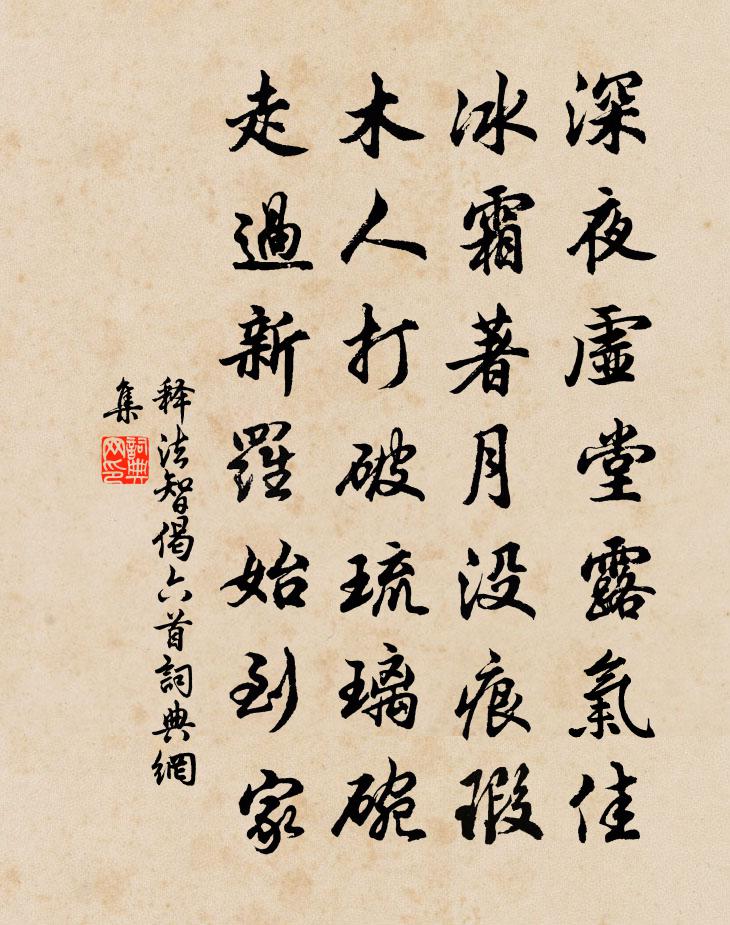 深夜虛堂露氣佳
冰霜著月没痕瑕
木人打破琉璃碗
走過新羅始到家
释法智偈六首詞典網
集
詞典
网印